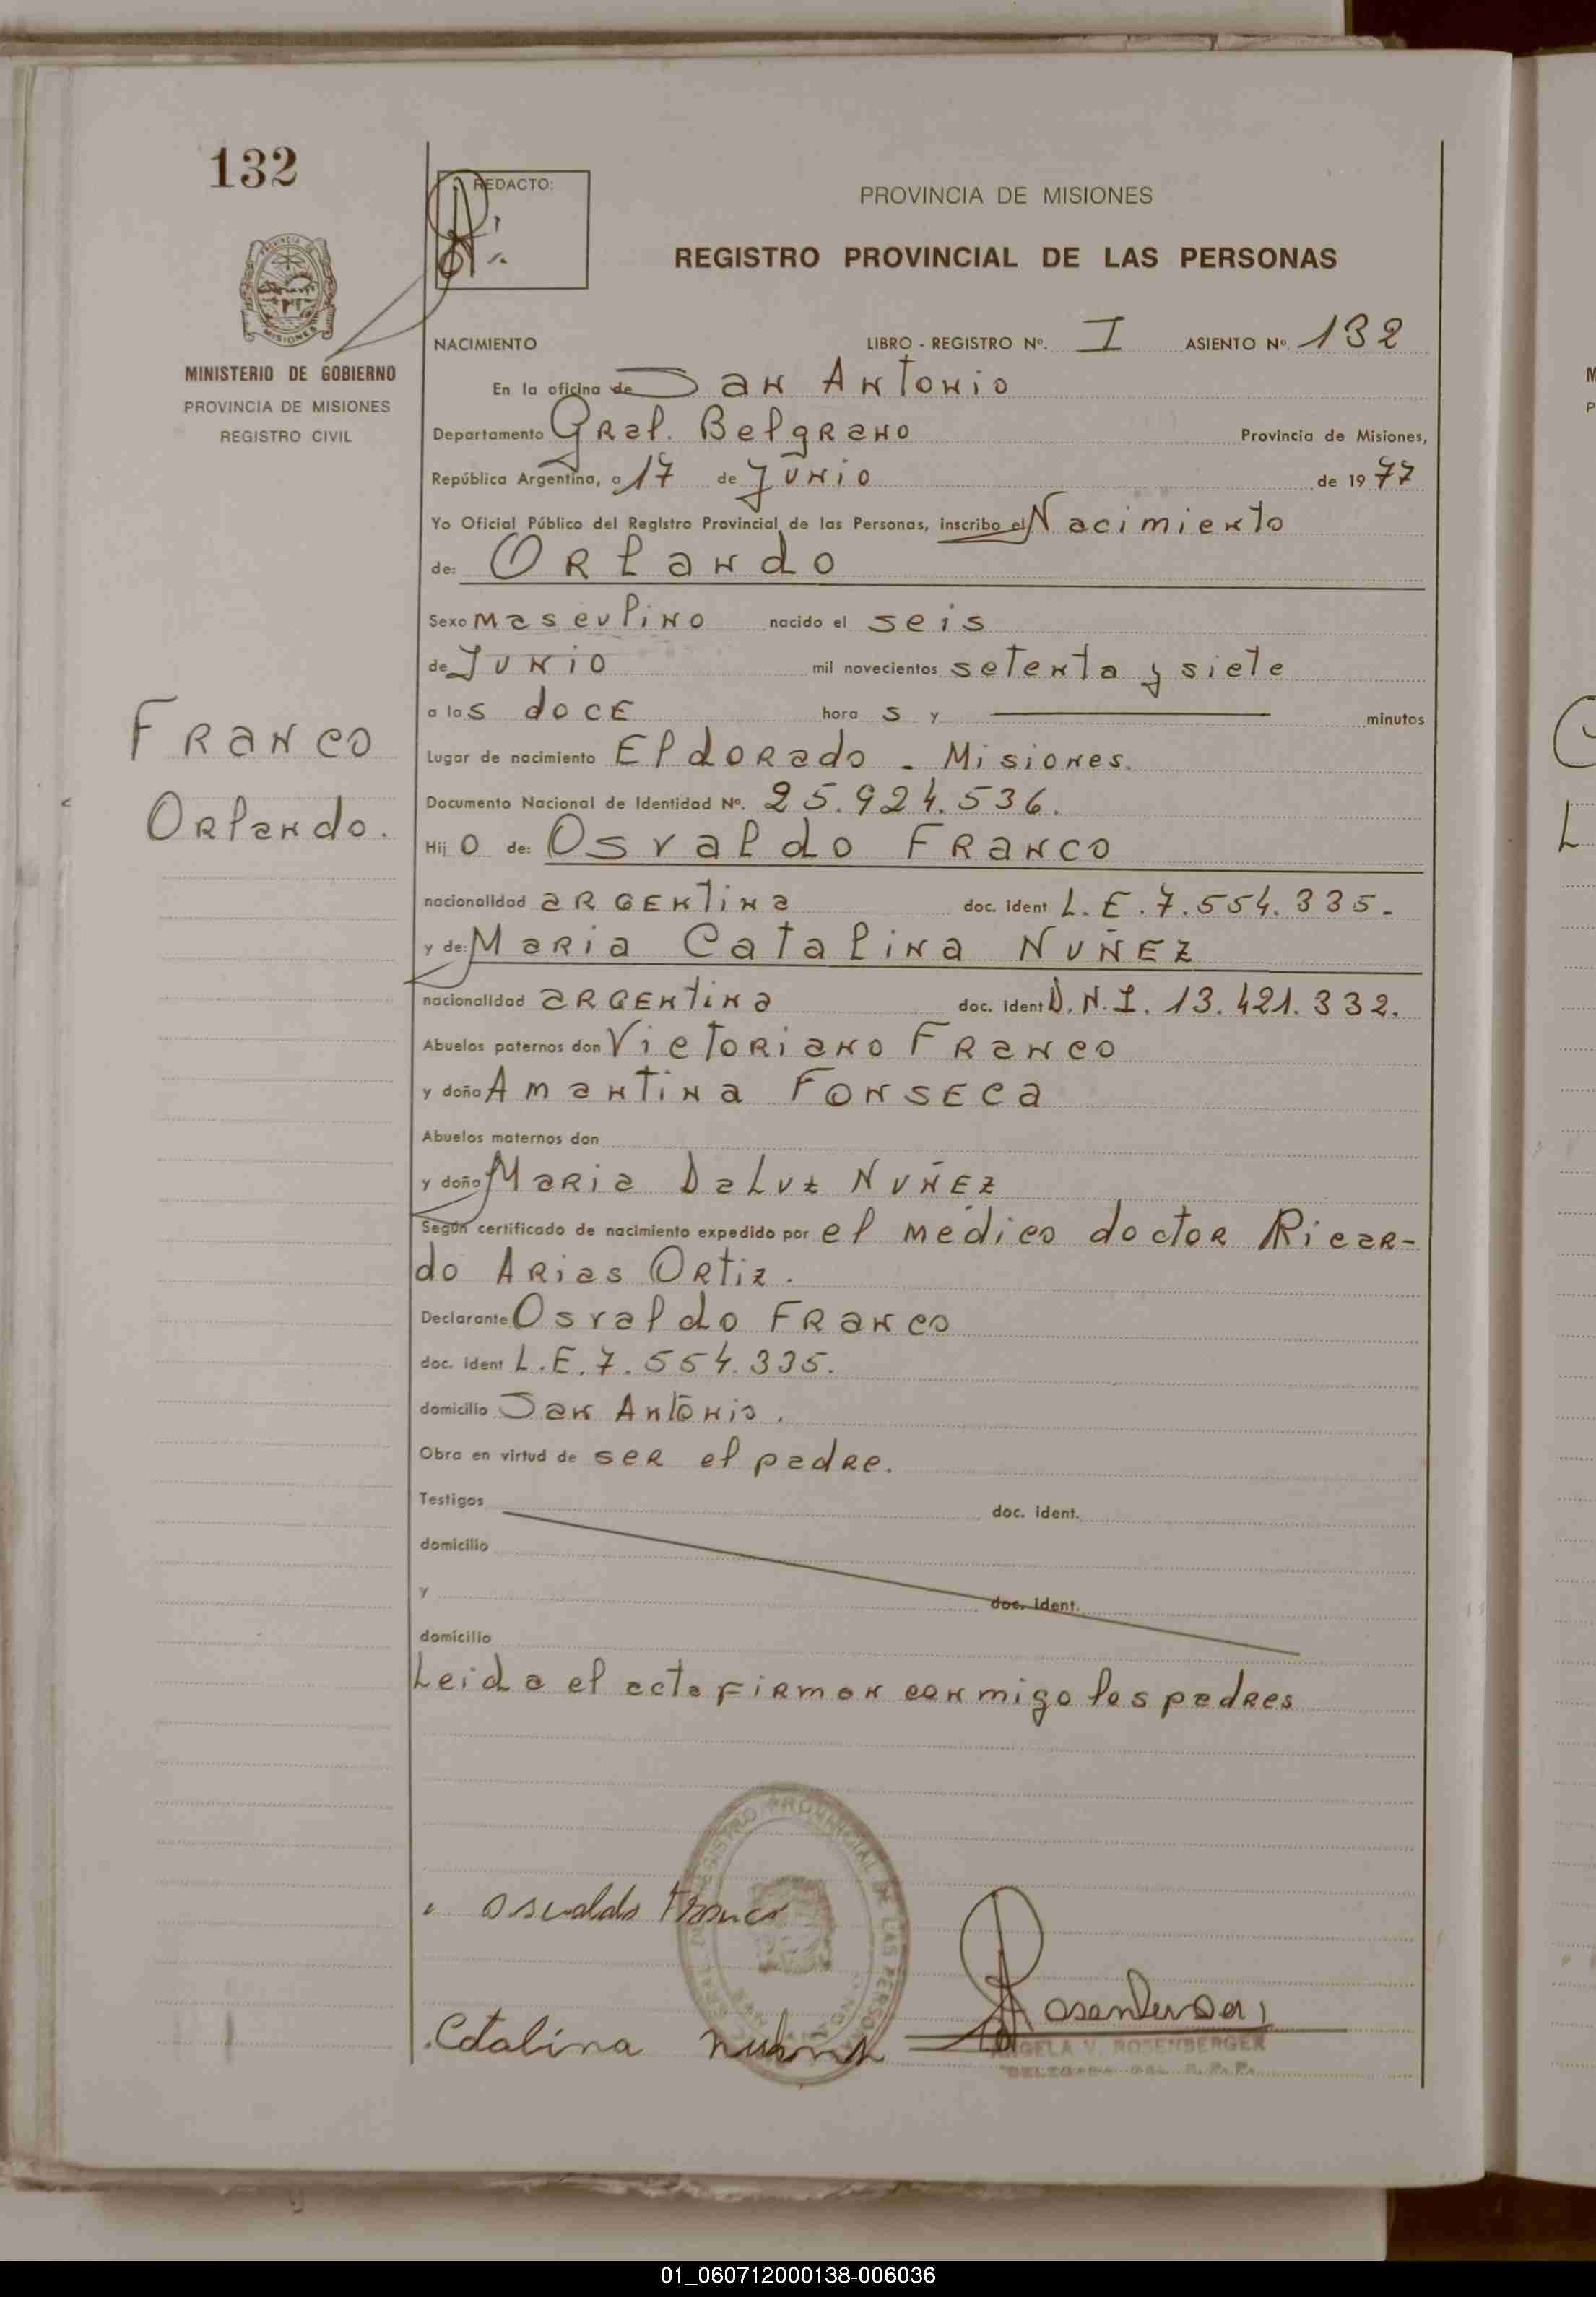 132
REDACTO:
PROVINCIA DE MISIONES
REGISTRO PROVINCIAL DE LAS PERSONAS
MISIONES
MINISTERIO DE GOBIERNO
PROVINCIA DE MISIONES
REGISTRO CIVIL
NACIMIENTO LIBRO - REGISTRO Nº. I ASIENTO Nº. 132
En la oficina de San Antonio
Departamento Gral. Belgrano Provincia de Misiones,
República Argentina, a 17 de Junio de 1977
Yo Oficial Público del Registro Provincial de las Personas, inscribo el Nacimiento
de: Orlando
Sexo masculino nacido el seis
de Junio mil novecientos setenta y siete
a las doce horas y minutos
Franco
Orlando.
Lugar de nacimiento Eldorado - Misiones.
Documento Nacional de Identidad Nº. 25.924.536.
Hijo de: Osvaldo Franco
nacionalidad argentina doc. ident L.E. 7.554.335.
y de: Maria Catalina Nuñez
nacionalidad argentina doc. ident D.N.I. 13.421.332.
Abuelos paternos don Victoriano Franco
y doña Amantina Fonseca
Abuelos maternos don
y doña Maria Daluz Nuñez
Según certificado de nacimiento expedido por el médico doctor Ricar-
do Arias Ortiz.
Declarante Osvaldo Franco
doc. ident L.E. 7.554.335.
domicilio San Antonio.
Obra en virtud de ser el padre.
Testigos doc. ident.
domicilio
y doc. ident.
domicilio
Leida el acta firman conmigo los padres
REGISTRO PROVINCIAL DE LAS PERSONAS
osvaldo Franco
Catalina
ANGELA V. ROSENBERGER
DELEGADA DEL R.P.P.
01_060712000138-006036